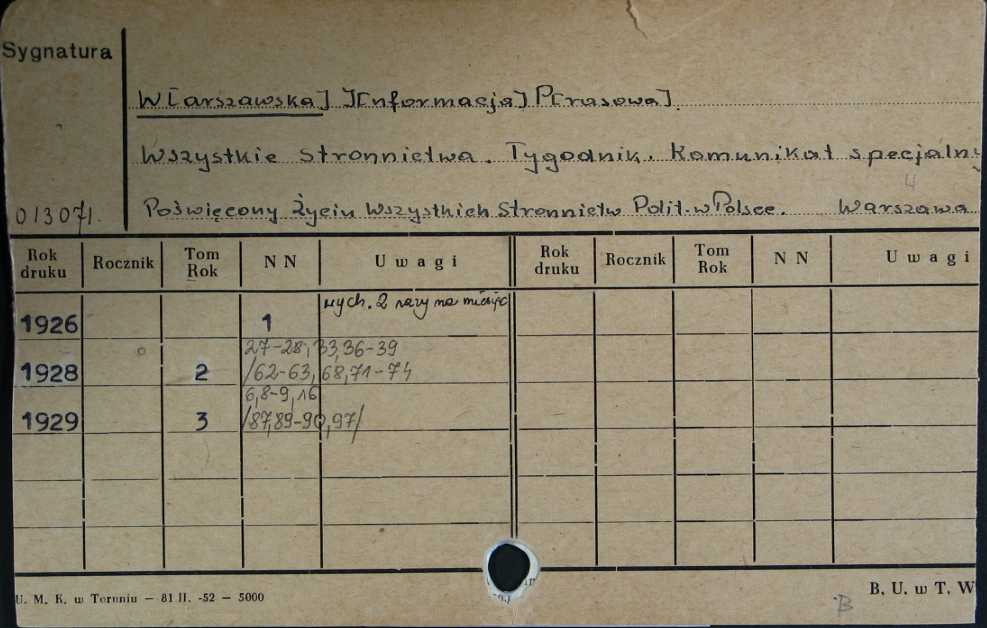 Sygnatura
W[arszawska] I[nformacja] P[rasowa].
Wszystkie Stronnictwa. Tygodnik. Komunikat specjalny
4
013071. Poświęcony Życiu Wszystkich Stronnictw Polit. w Polsce. Warszawa
Rok druku Rocznik Tom Rok N N Uwagi Rok druku Rocznik Tom Rok N N Uwagi
wych. 2 razy na miesiąc
1926 1
27-28, 33, 36-39
1928 2 /62-63, 68, 71-74
6, 8-9, 16
1929 3 /87, 89-90, 97/
U. M. K. w Toruniu — 81 II. -52 — 5000
B. U. w T. W
B